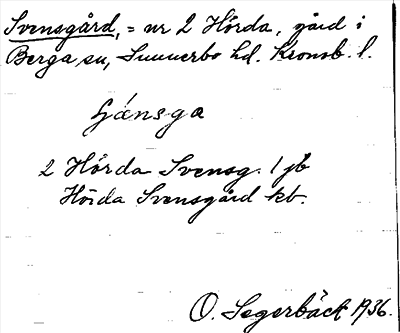 Svensgård, = nr 2 Hörda, gård i
Berga sn, Sunnerbo hd. Kronob. l.
2 Hörda Svensg. 1 jb
Hörda Svensgård kb.
O. Segerbäck 1936.